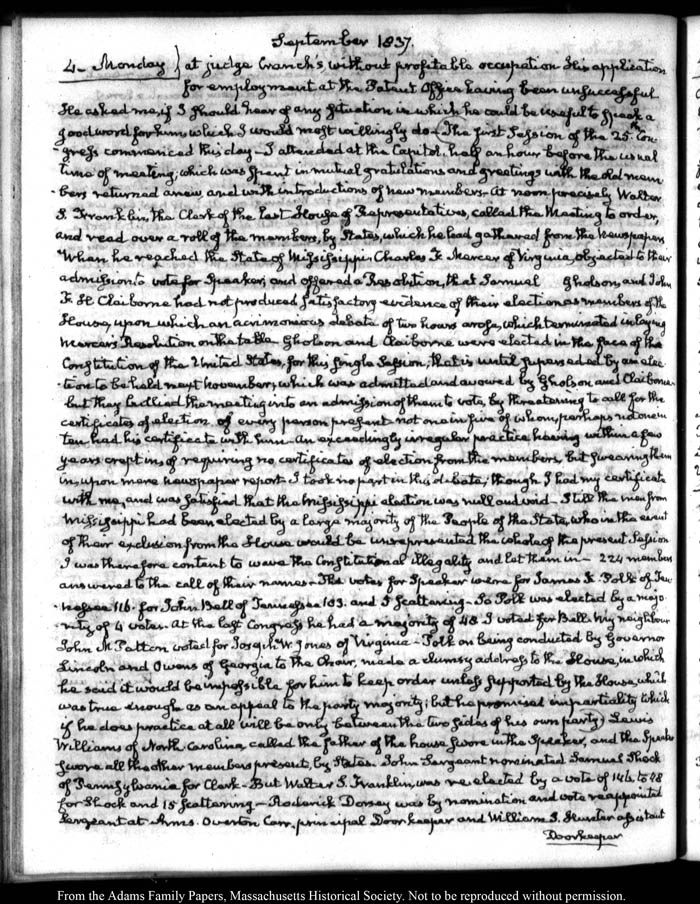 September 1837.
4. Monday} at judge Cranch's, without profitable occupation His application
for employment at the Patent Office having been unsuccessful
He asked me, if I should hear of any situation in which he could be useful to speak a
good word for him, which I would most willingly do— The first Session of the 25th Con-
-gress commenced this day— I attended at the Capitol, half an hour before the usual
time of meeting; which was spent in mutual gratulations and greetings with the old mem
-bers returned anew, and with introductions of new members— At noon precisely Walter
S. Franklin, the Clerk of the last House of Representatives, called the Meeting to order,
and read over a roll of the members, by States, which he had gathered from the Newspapers
When he reached the State of Mississippi, Charles F. Mercer of Virginia, objected to their
admission to vote for Speaker, and offered a Resolution, that Samuel Gholson, and John
F. H. Claiborne had not produced satisfactory evidence of their election as members of the
House, upon which an acrimonious debate of two hours arose, which terminated in laying
Mercer's Resolution on the table. Gholson and Claiborne were elected in the face of the
Constitution of the United States, for this single Session; that is until superseded by an elec
-tion to be held next November; which was admitted and avowed by Gholson and Claiborne
but they bullied the meeting into an admission of them to vote, by threatening to call for the
certificates of election of every person present not one in five of whom perhaps not one in
ten had his certificate with him— An exceedingly irregular practice having within a few
years crept in, of requiring no certificates of election from the members, but swearing them
in, upon mere newspaper report— I took no part in this debate; though I had my certificate
with me, and was satisfied that the Mississippi election was null and void— Still the men from
Mississippi had been elected by a large majority of the People of the State, who in the event
of their exclusion from the House would be unrepresented the whole of the present Session
I was therefore content to wave the Constitutional illegality and let them in— 224 members
answered to the call of their names— The votes for Speaker were for James K. Polk of Ten
-nessee 116. for John Bell of Tennessee 103. and 5 scattering— So Polk was elected by a majo
-rity of 4 votes. At the last Congress he had a majority of 48. I voted for Bell. My neighbour
John M. Patton voted for Joseph W. Jones of Virginia— Polk on being conducted by Governor
Lincoln and Owens of Georgia to the Chair, made a clumsy address to the House, in which
he said it would be impossible for him to keep order unless supported by the House, which
was true enough as an appeal to the party majority; but he promised impartiality (which
if he does practice at all will be only between the two sides of his own party) Lewis
Williams of North Carolina, called the father of the house swore in the Speaker, and the Speaker
swore all the other members present, by States. John Sergeant nominated Samuel Shock
of Pennsylvania for Clerk— But Walter S. Franklin, was re elected by a vote of 146 to 48
for Shock and 15 scattering— Roderick Dorsey was by nomination and vote reappointed
Sergeant at Arms. Overton Carr, principal Doorkeeper and William J. Hunter assistant
Doorkeeper
From the Adams Family Papers, Massachusetts Historical Society. Not to be reproduced without permission.